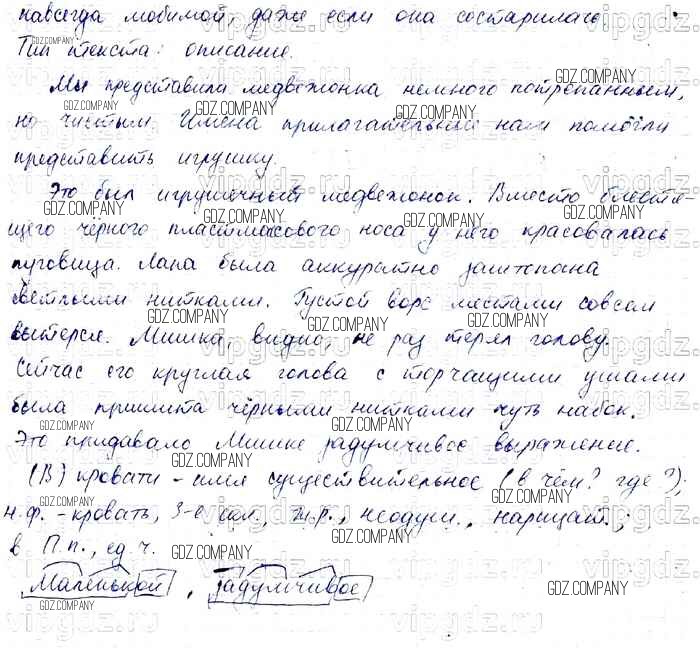 навсегда любимой, даже если она состарилась.
Тип текста: описание.
Мы представили медвежонка немного потрёпанным,
но чистым. Имена прилагательные нам помогли
представить игрушку.
Это был игрушечный медвежонок. Вместо блестя-
щего чёрного пластмасового носа у него красовалась
пуговица. Лапа была аккуратно заштопана
светлыми нитками. Густой ворс местами совсем
вытерся. Мишка, видно, не раз терял голову.
Сейчас его круглая голова с торчащими ушами
была пришита чёрными нитками чуть набок.
Это придавало Мишке задумчивое выражение.
(В) кровати - имя существительное (в чём? где?);
н.ф. - кровать, 3-е скл., ж.р., неодуш., нарицат.;
в П.п., ед.ч.
Маленькой, задумчивое